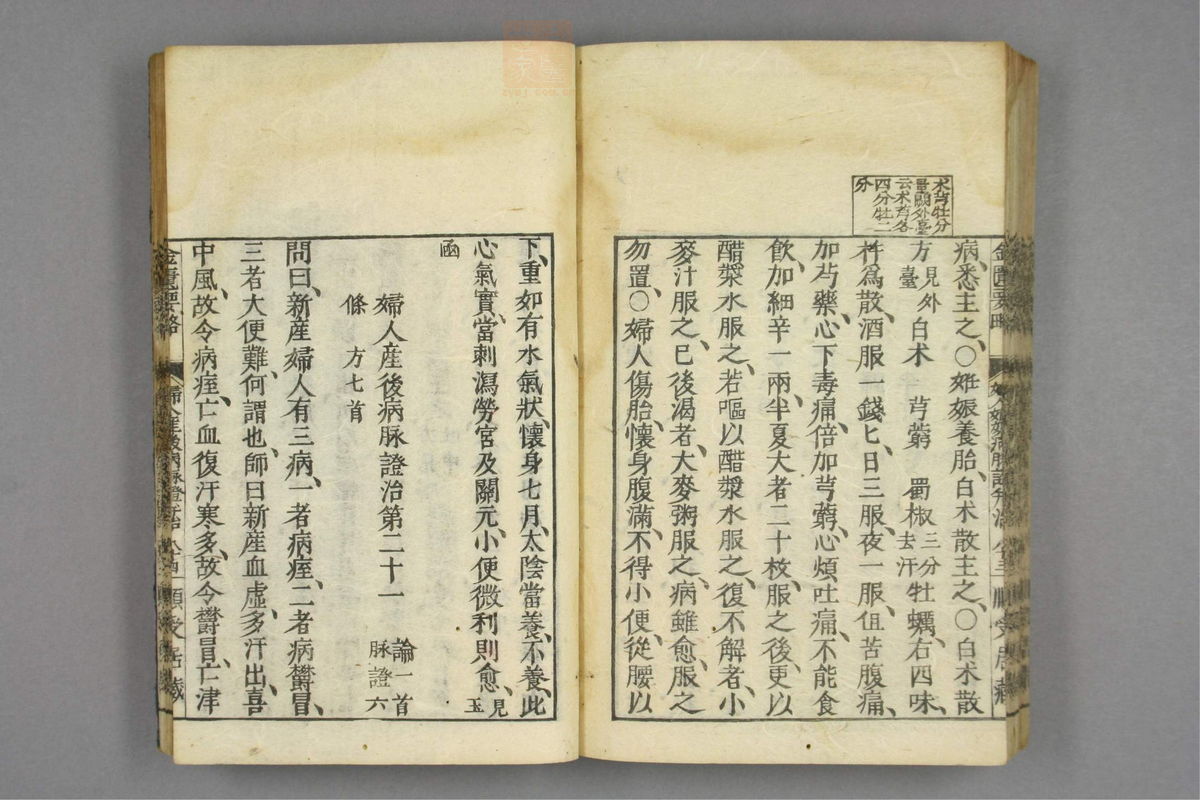 朮芎牡分
量闕外臺
云朮芎各
四分牡二
分
病、悉主之、○妊娠養胎、白朮散主之、○白朮散
方見外臺白朮 芎藭 蜀椒三分去汗牡蠣、右四味、
杵爲散、酒服一錢匕、日三服、夜一服、但苦腹痛、
加芍藥、心下毒痛、倍加芎藭、心煩吐痛、不能食
飲、加細辛一兩、半夏大者二十枚、服之後、更以
醋漿水服之、若嘔以醋漿水服之、復不解者、小
麥汁服之、已後渴者、大麥粥服之、病雖愈、服之
勿置、○婦人傷胎、懷身腹滿、不得小便、從腰以
下重、如有水氣狀、懷身七月、太陰當養、不養、此
心氣實、當刺瀉勞宮及關元、小便微利則愈、見玉
函
婦人産後病脉證治第二十一 論一首 脉證六
條 方七首
問曰、新産婦人有三病、一者病痙、二者病鬱冒、
三者大便難、何謂也、師曰、新産血虛、多汗出、喜
中風、故令病痙、亡血復汗寒多、故令鬱冒、亡津
金匱要略